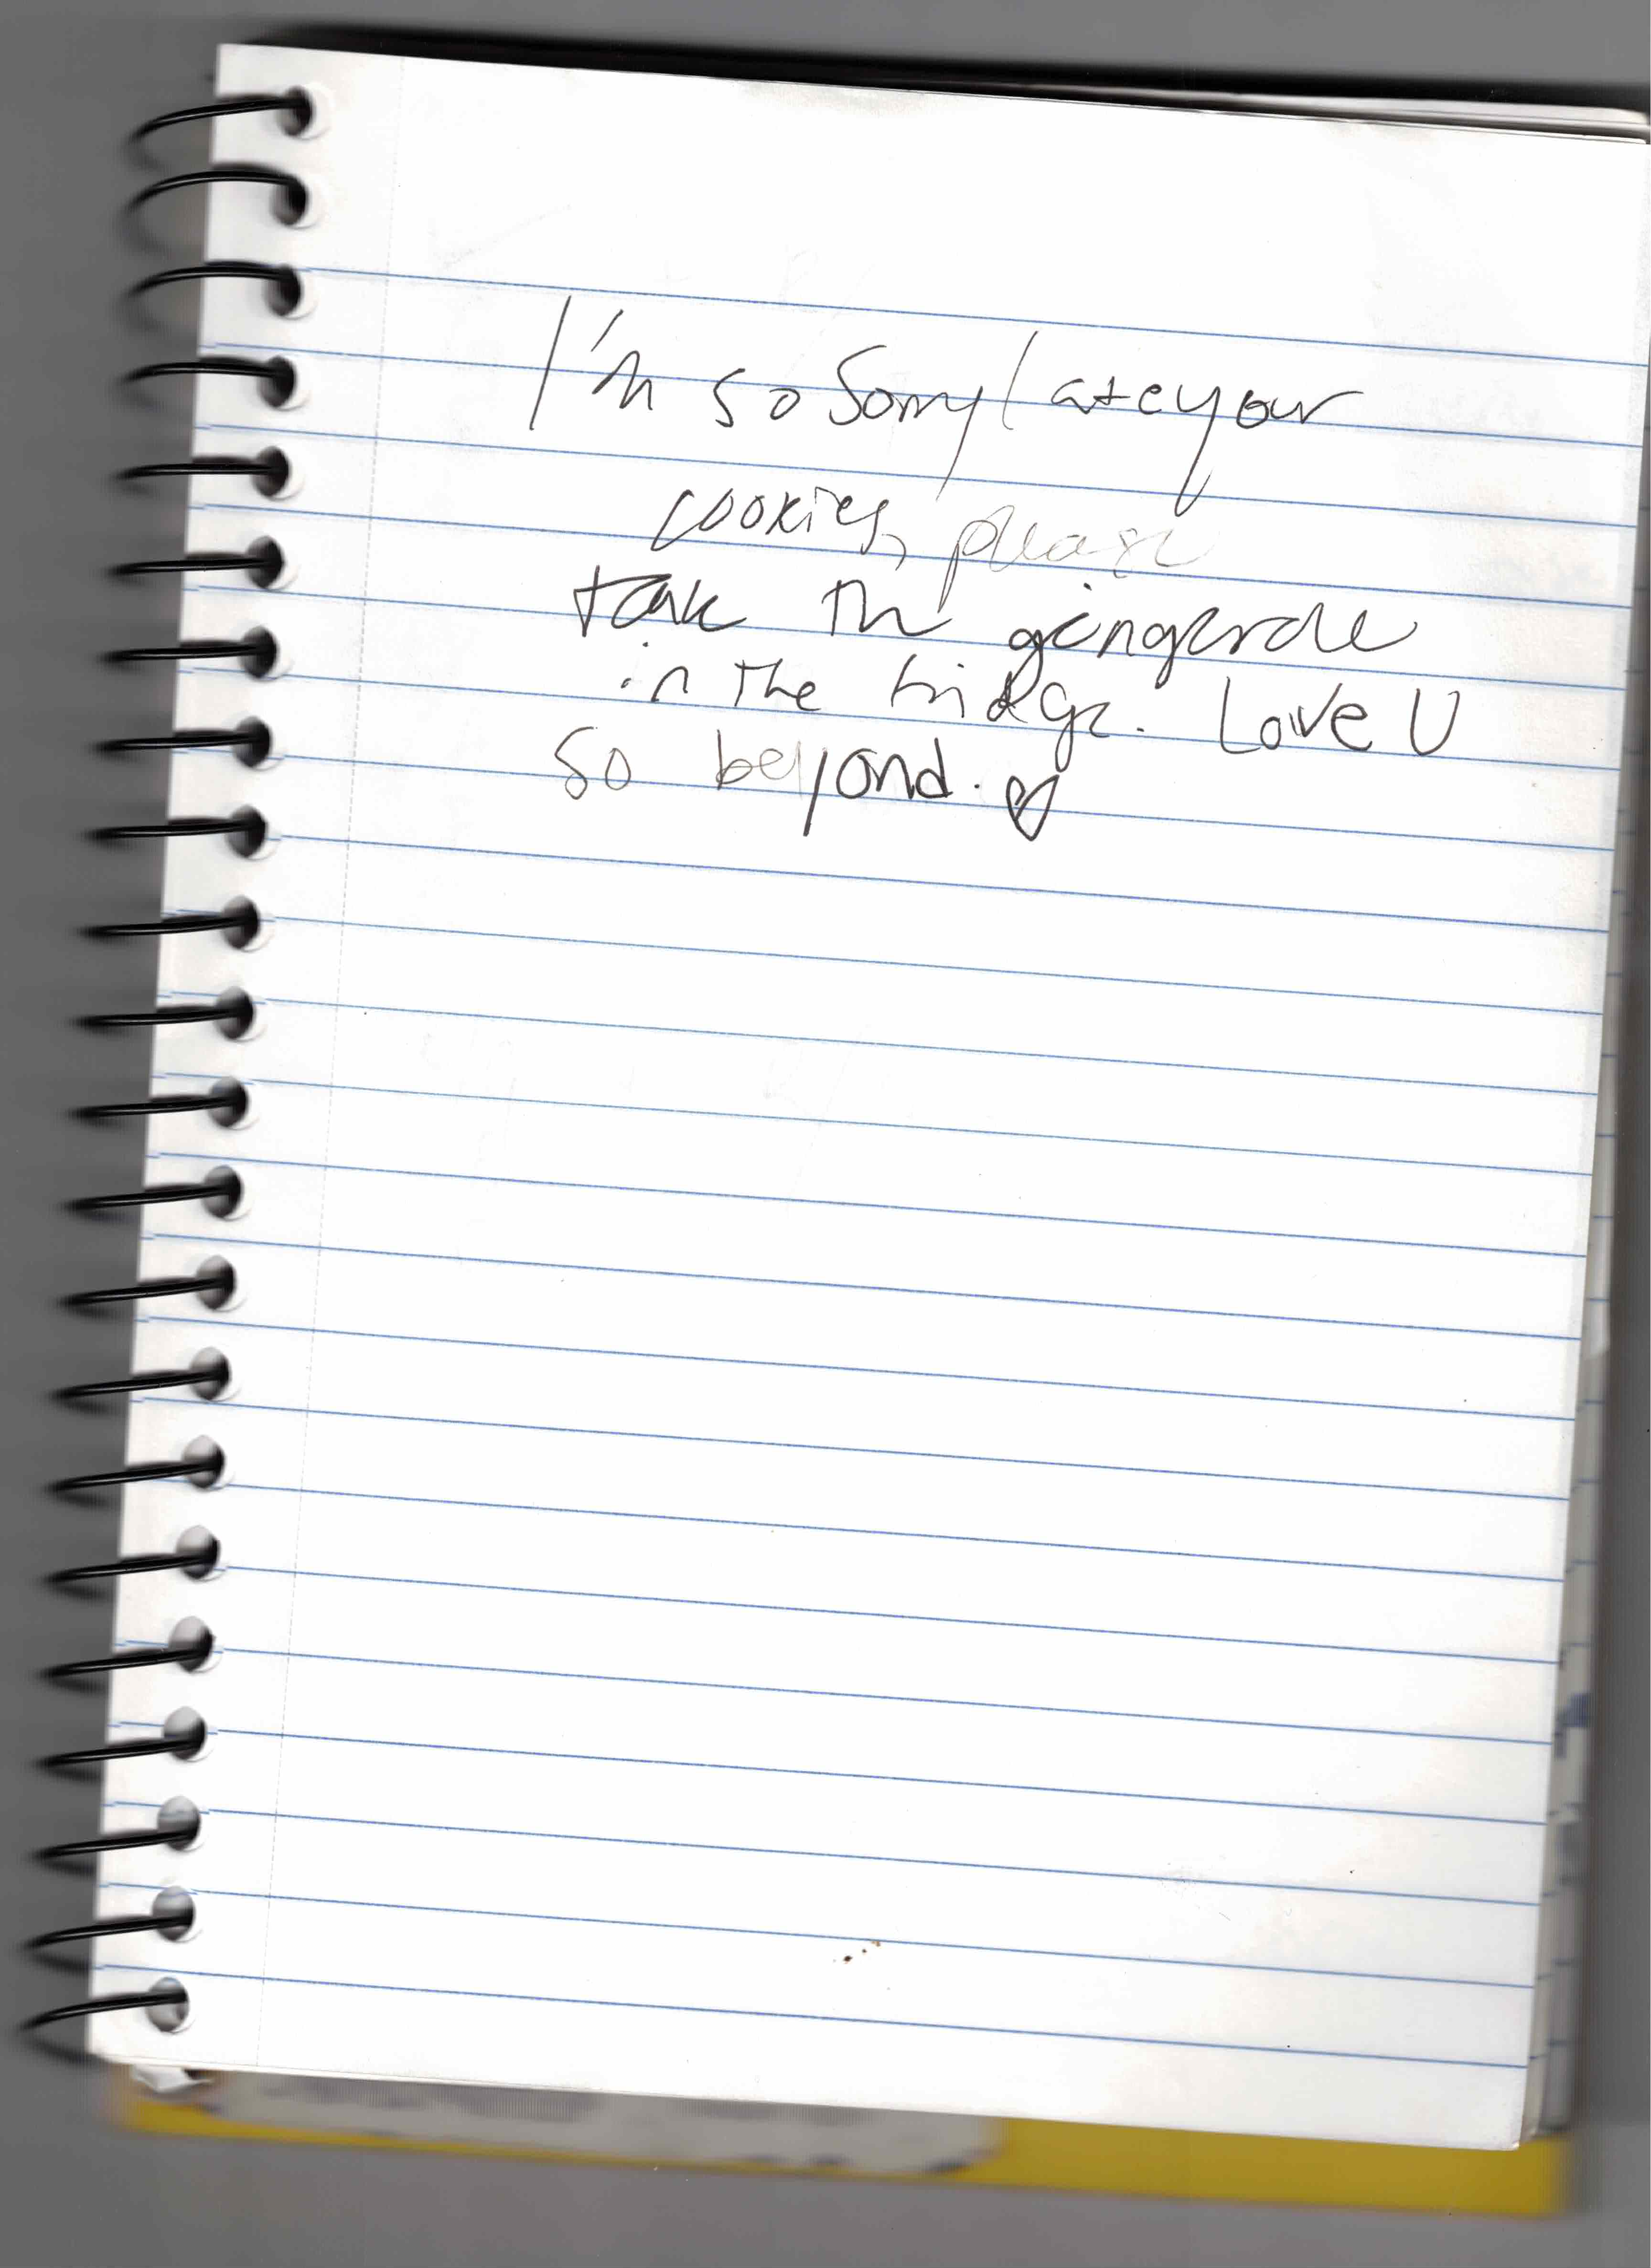 I'm so Sorry I ate your
cookies, please
take the gingerale
in the fridge. Love U
so beyond. ♡